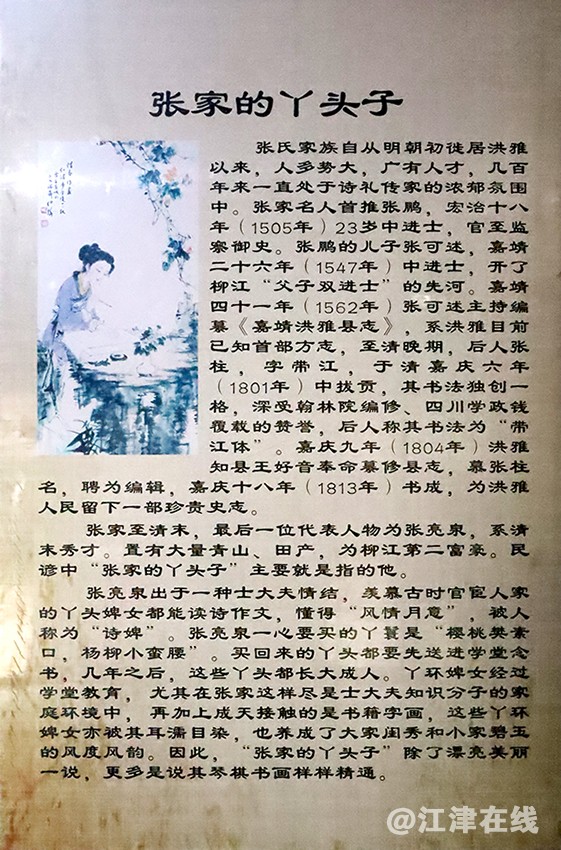 张家的丫头子
张氏家族自从明朝初徙居洪雅
以来，人多势大，广有人才，几百
年来一直处于诗礼传家的浓郁氛围
中。张家名人首推张鹏，宏治十八
年（1505年）23岁中进士，官至监
察御史。张鹏的儿子张可述，嘉靖
二十六年（1547年）中进士，开了
柳江“父子双进士”的先河。嘉靖
四十一年（1562年）张可述主持编
纂《嘉靖洪雅县志》，系洪雅目前
已知首部方志，至清晚期，后人张
柱，字带江，于清嘉庆六年
（1801年）中拔贡，其书法独创一
格，深受翰林院编修、四川学政钱
覆载的赞誉，后人称其书法为“带
江体”。嘉庆九年（1804年）洪雅
知县王好音奉命纂修县志，慕张柱
名，聘为编辑，嘉庆十八年（1813年）书成，为洪雅
人民留下一部珍贵史志。
张家至清末，最后一位代表人物为张亮泉，系清
末秀才。置有大量青山、田产，为柳江第二富豪。民
谚中“张家的丫头子”主要就是指的他。
张亮泉出于一种士大夫情结，羡慕古时官宦人家
的丫头婢女都能读诗作文，懂得“风情月意”，被人
称为“诗婢”。张亮泉一心要买的丫鬟是“樱桃樊素
口，杨柳小蛮腰”。买回来的丫头都要先送进学堂念
书，几年之后，这些丫头都长大成人。丫环婢女经过
学堂教育，尤其在张家这样尽是士大夫知识分子的家
庭环境中，再加上成天接触的是书籍字画，这些丫环
婢女亦被其耳濡目染，也养成了大家闺秀和小家碧玉
的风度风韵。因此，“张家的丫头子”除了漂亮美丽
一说，更多是说其琴棋书画样样精通。
@江津在线